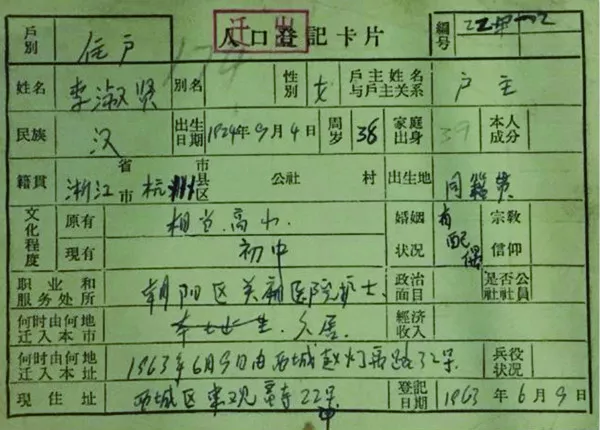 迁出
人口登記卡片
戶別 住户 編号
姓名 李淑贤 別名 性別 女 戶主姓名与戶主关系 户主
民族 汉 出生日期 1924年9月4日 周岁 38 家庭出身 本人成分
籍貫 浙江 省市 杭州 市县区 公社 村 出生地 同籍贯
文化程度 原有 相当高小 婚姻状况 有配偶 宗教信仰
現有 初中
职业和服务处所 朝阳区关廂医院护士 政治面目 是否公社社員
何时由何地迁入本市 久居 經济收入
何时由何地迁入本址 1963年6月9日由西城 32号 兵役状况
現住址 西城区东观音寺22号 登記日期 1963年6月9日